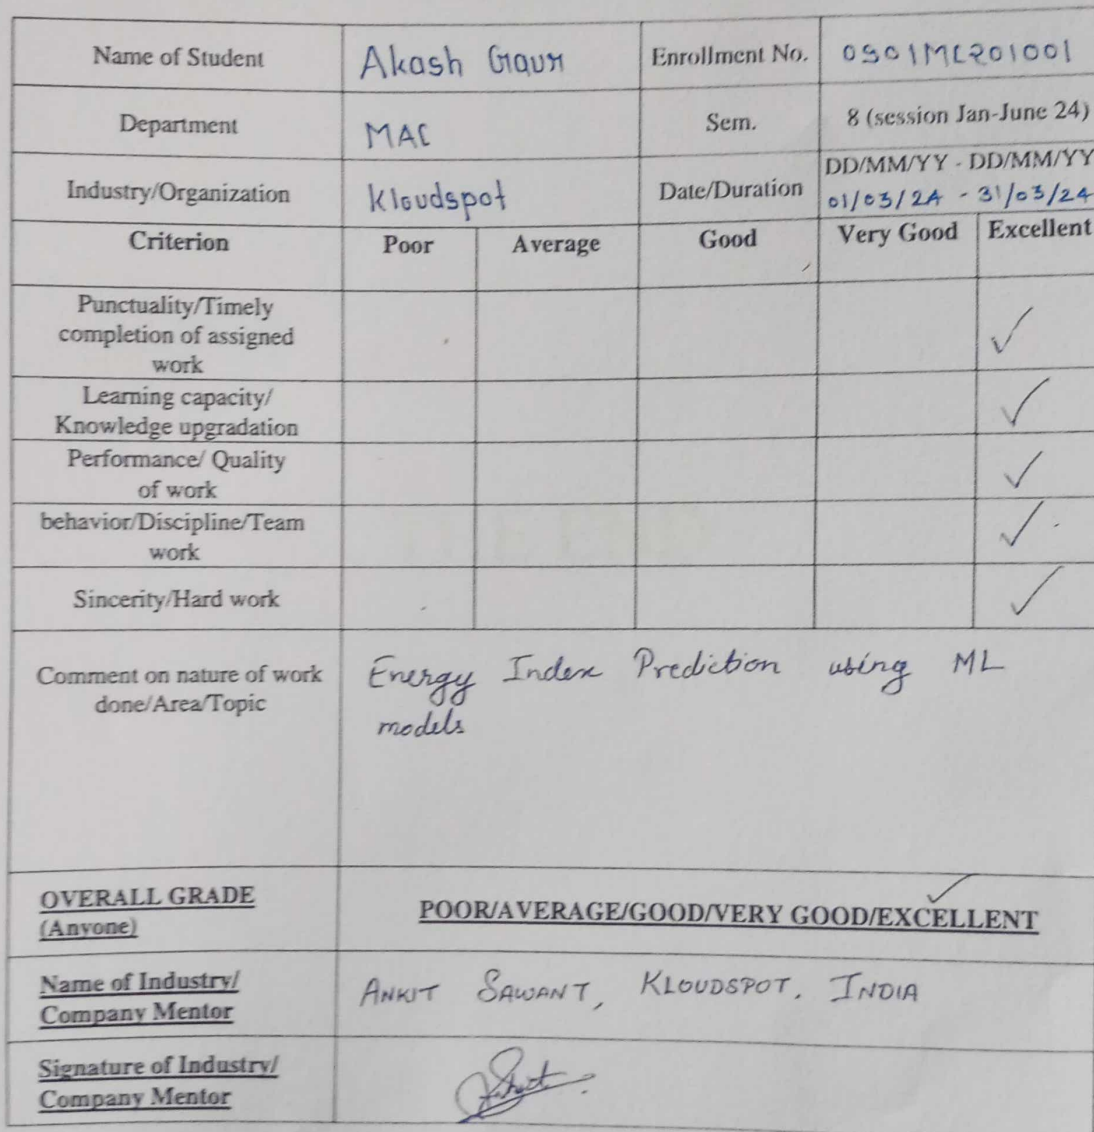 Name of Student Akash Gaur Enrollment No. 0901MC201001
Department MAC Sem. 8 (session Jan-June 24)
Industry/Organization Kloudspot Date/Duration DD/MM/YY - DD/MM/YY
01/03/24 - 31/03/24
Criterion Poor Average Good Very Good Excellent
Punctuality/Timely
completion of assigned
work
Learning capacity/
Knowledge upgradation
Performance/ Quality
of work
behavior/Discipline/Team
work
Sincerity/Hard work
Comment on nature of work
done/Area/Topic
Energy Index Prediction using ML
models
OVERALL GRADE
(Anyone)
POOR/AVERAGE/GOOD/VERY GOOD/EXCELLENT
Name of Industry/
Company Mentor
ANKIT SAWANT, KLOUDSPOT, INDIA
Signature of Industry/
Company Mentor